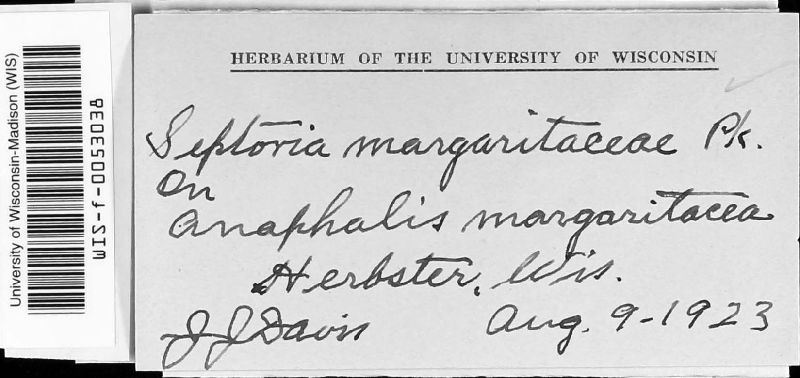 University of Wisconsin-Madison (WIS)
WIS-f-0053038
HERBARIUM OF THE UNIVERSITY OF WISCONSIN
Septoria margaritaceae Pk.
On
Anaphalis margaritacea
Herbster, Wis.
J J Davis Aug. 9-1923